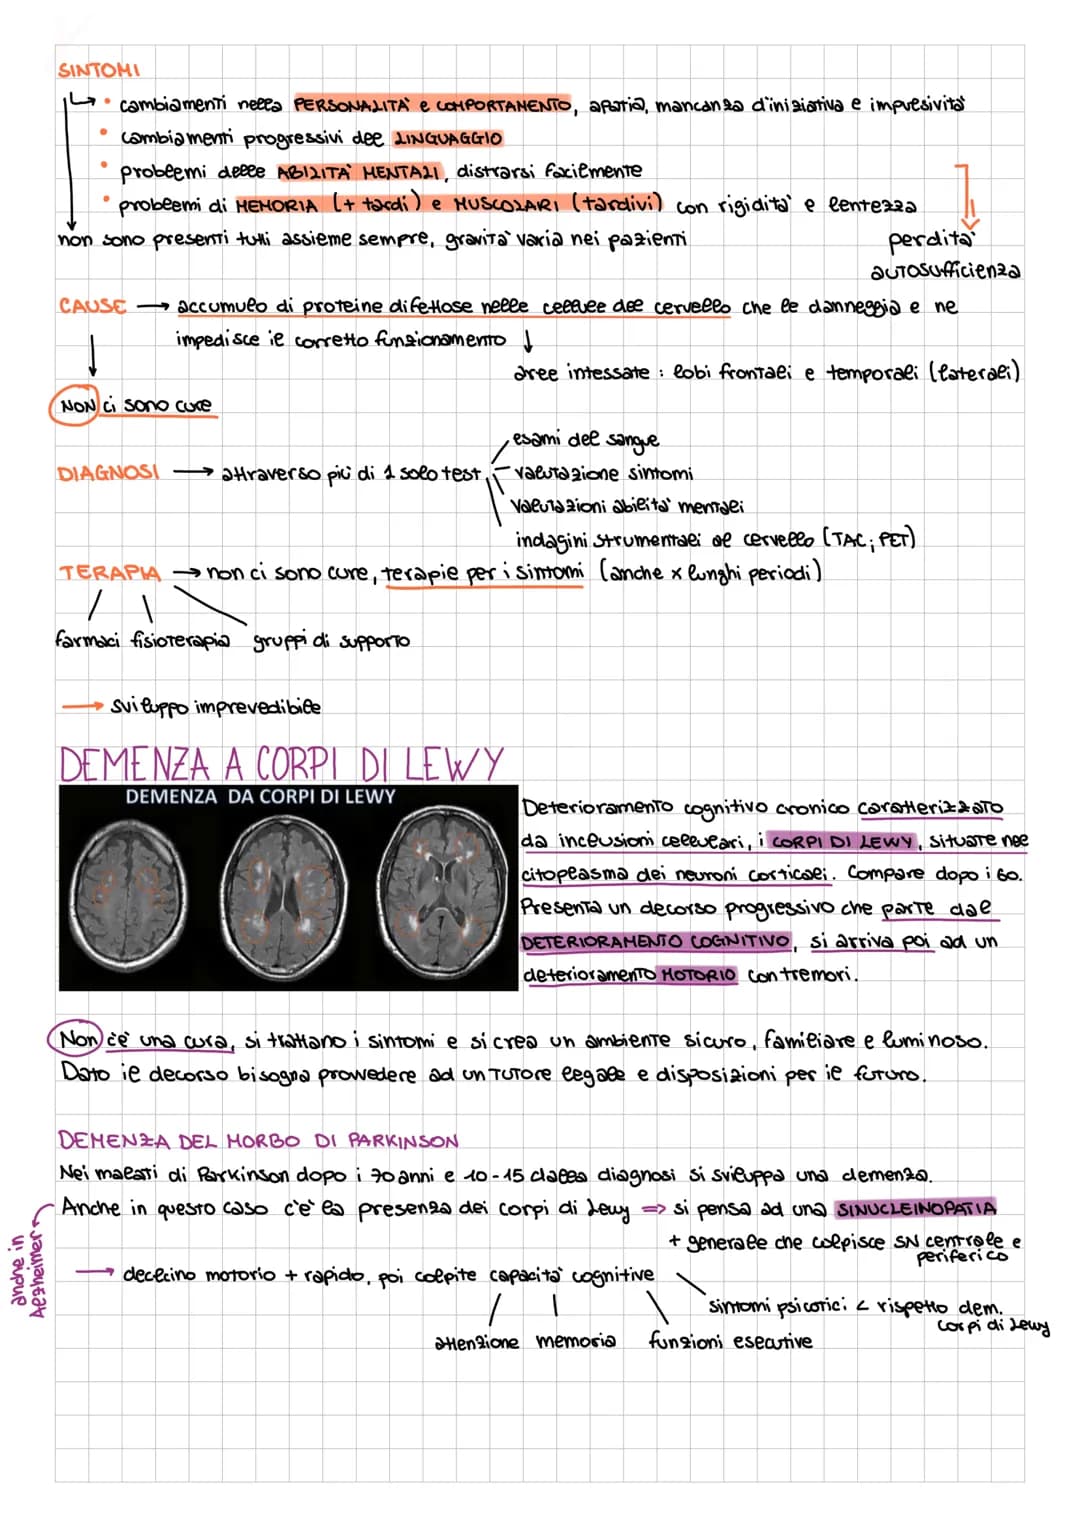 SINTOMI
• cambiamenti nella PERSONALITA' e COMPORTAMENTO, apatia, mancanza d'iniziativa e impulsività
• cambiamenti progressivi del LINGUAGGIO
• problemi delle ABILITA' MENTALI, distrarsi facilmente
• problemi di MEMORIA (+ tardi) e MUSCOLARI (tardivi) con rigidità e lentezza
non sono presenti tutti assieme sempre, gravità varia nei pazienti
perdita autosufficienza
CAUSE → accumulo di proteine difettose nelle cellule del cervello che le danneggia e ne
impedisce il corretto funzionamento ↓
aree intessate : lobi frontali e temporali (laterali)
NON ci sono cure
DIAGNOSI → attraverso più di 1 solo test
esami del sangue
valutazione sintomi
valutazioni abilità mentali
indagini strumentali al cervello (TAC; PET)
TERAPIA → non ci sono cure, terapie per i sintomi (anche x lunghi periodi)
farmaci fisioterapia gruppi di supporto
→ sviluppo imprevedibile
DEMENZA A CORPI DI LEWY
DEMENZA DA CORPI DI LEWY
Deterioramento cognitivo cronico caratterizzato
da inclusioni cellulari, i CORPI DI LEWY, situate nel
citoplasma dei neuroni corticali. Compare dopo i 60.
Presenta un decorso progressivo che parte dal
DETERIORAMENTO COGNITIVO, si arriva poi ad un
deterioramento MOTORIO con tremori.
Non c'è una cura, si trattano i sintomi e si crea un ambiente sicuro, familiare e luminoso.
Dato il decorso bisogna provvedere ad un tutore legale e disposizioni per il futuro.
DEMENZA DEL MORBO DI PARKINSON
Nei malati di Parkinson dopo i 70 anni e 10-15 dalla diagnosi si sviluppa una demenza.
Anche in questo caso c'è la presenza dei corpi di Lewy ⇒ si pensa ad una SINUCLEINOPATIA
anche in Alzheimer
+ generale che colpisce SN centrale e
periferico
→ declino motorio + rapido, poi colpite capacità cognitive
sintomi psicotici < rispetto dem.
corpi di Lewy
attenzione memoria funzioni esecutive